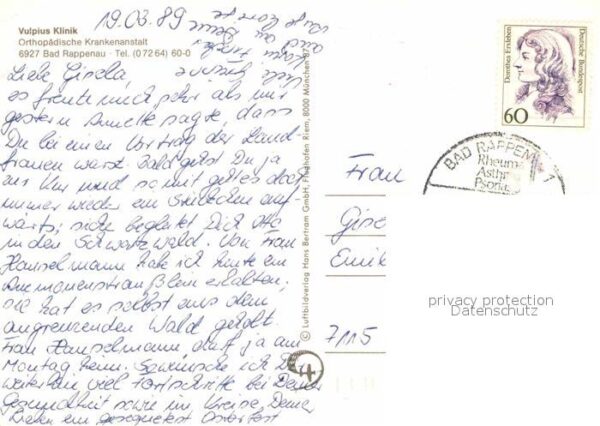 19.03.89
Vulpius Klinik
Orthopädische Krankenanstalt
6927 Bad Rappenau · Tel. (07264) 60-0
Liebe Gisela
es freute mich sehr als mir
gestern Annette sagte, dass
Du bei einem Vortrag der Land-
frauen warst. Bald gehst Du ja
zur Kur und somit geht es doch
immer wieder ein Stückchen auf-
wärts; sicher begleitet Dich Otto
in den Schwarzwald. Von Frau
Hanselmann habe ich heute ein
Anemonensträußlein erhalten;
sie hat es selbst aus dem
angrenzenden Wald geholt.
Frau Hanselmann darf ja am
Montag heim. So wünsche ich Dir
weiterhin viel Fortschritte bei Deiner
Gesundheit sowie im Kreise Deiner
Lieben ein gesegnetes Osterfest
© Luftbildverlag Hans Bertram GmbH, Flughafen Riem, 8000 München 87
Dorothea Erxleben
Deutsche Bundespost
60
BAD RAPPEN 1
Rheum
Asthm
Psoria
Frau
Gise
Emik
7115
privacy protection
Datenschutz